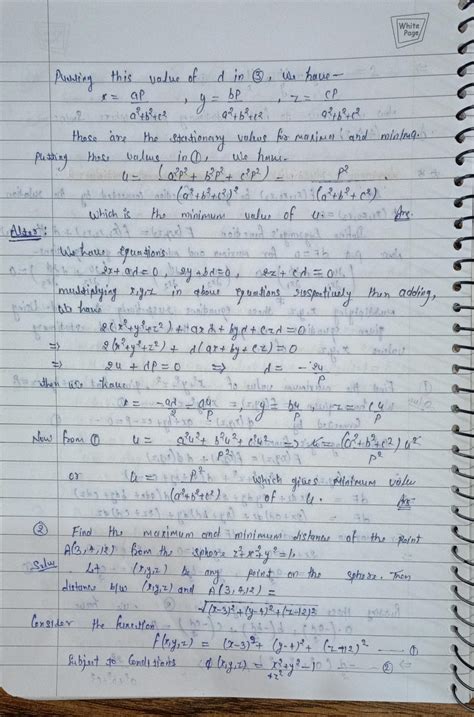 White Page
Putting this value of λ in ③, we have—
x = aP/(a²+b²+c²) , y = bP/(a²+b²+c²) , z = cP/(a²+b²+c²)
these are the stationary values for maxima and minima.
Putting these values in ①, we have.
u = (a²P² + b²P² + c²P²)/(a²+b²+c²)² = P²/(a²+b²+c²)
which is the minimum value of u. Ans.
Alter:
We have equations
2x + aλ = 0 , 2y + bλ = 0 , 2z + cλ = 0
multiplying x, y, z in above equations respectively then adding,
we have
2(x²+y²+z²) + aλx + bλy + cλz = 0
⇒ 2(x²+y²+z²) + λ(ax+by+cz) = 0
⇒ 2u + λP = 0 ⇒ λ = -2u/P
then we have
x = -aλ/2 = au/P , y = bu/P , z = cu/P
Now from ① u = (a²u² + b²u² + c²u²)/P² ⇒ u = (a²+b²+c²)u²/P²
or u = P²/(a²+b²+c²) which gives minimum value of u. Ans
② Find the maximum and minimum distance of the point
A(3,4,12) from the sphere x²+y²+z²=1.
Solu Let (x,y,z) be any point on the sphere. Then
distance b/w (x,y,z) and A(3,4,12)
= √(x-3)²+(y-4)²+(z-12)²
Consider the function
f(x,y,z) = (x-3)²+(y-4)²+(z-12)² — ①
Subject to conditions φ(x,y,z) = x²+y²-1 — ②
+z²